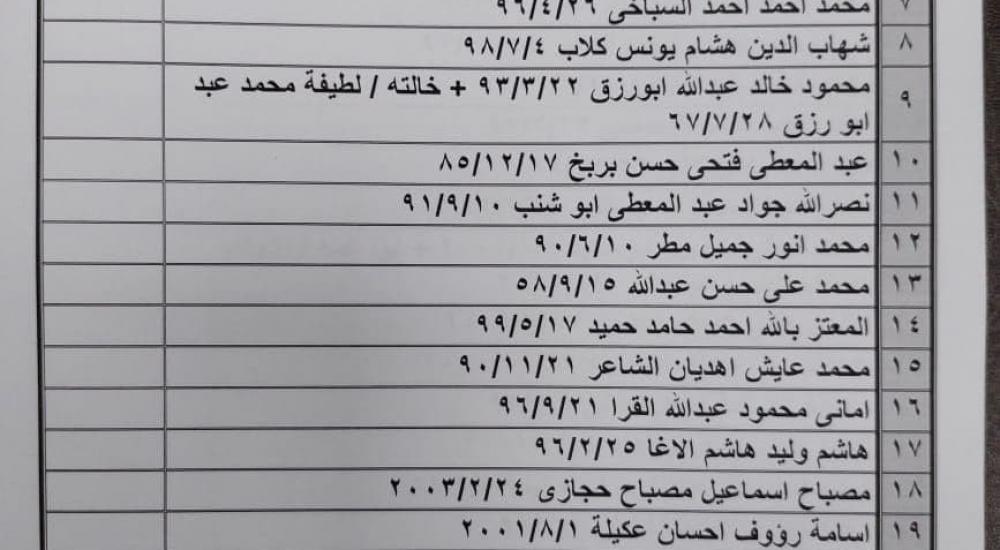 ٧ محمد احمد احمد السباخى ٩٦/٤/٢٦
٨ شهاب الدين هشام يونس كلاب ٩٨/٧/٤
٩ محمود خالد عبدالله ابورزق ٩٣/٣/٢٢ + خالته / لطيفة محمد عبد
ابو رزق ٦٧/٧/٢٨
١٠ عبد المعطى فتحى حسن بربخ ٨٥/١٢/١٧
١١ نصرالله جواد عبد المعطى ابو شنب ٩١/٩/١٠
١٢ محمد انور جميل مطر ٩٠/٦/١٠
١٣ محمد على حسن عبدالله ٥٨/٩/١٥
١٤ المعتز بالله احمد حامد حميد ٩٩/٥/١٧
١٥ محمد عايش اهديان الشاعر ٩٠/١١/٢١
١٦ امانى محمود عبدالله القرا ٩٦/٩/٢١
١٧ هاشم وليد هاشم الاغا ٩٦/٢/٢٥
١٨ مصباح اسماعيل مصباح حجازى ٢٠٠٣/٢/٢٤
١٩ اسامة رؤوف احسان عكيلة ٢٠٠١/٨/١